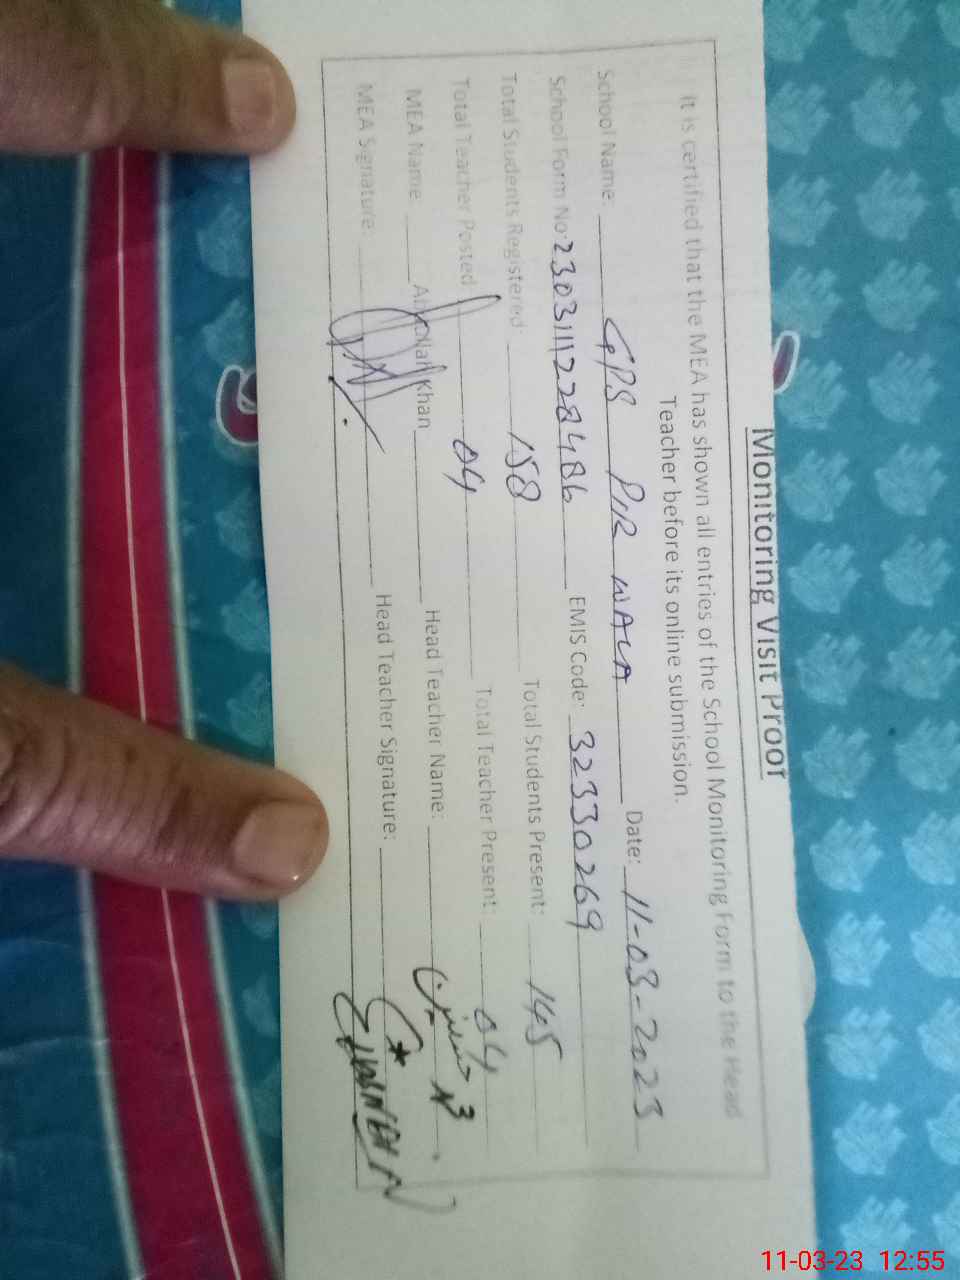 Monitoring Visit Proof
It is certified that the MEA has shown all entries of the School Monitoring Form to the Head
Teacher before its online submission.
School Name: GPS PIR WALA Date: 11-03-2023
School Form No: 2303111228486 EMIS Code: 32330269
Total Students Registered: 158 Total Students Present: 145
Total Teacher Posted 04 Total Teacher Present: 04
MEA Name: Khan Head Teacher Name:
MEA Signature: Head Teacher Signature:
11-03-23 12:55